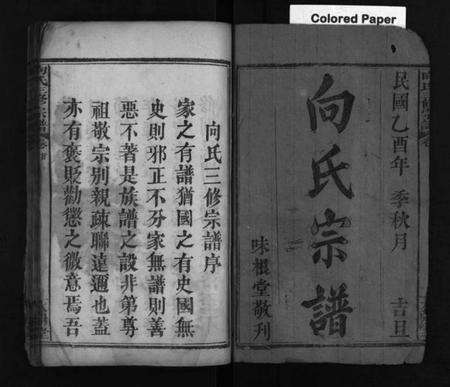 Colored Paper
民國乙酉年 季秋月 吉日
向氏宗譜
味根堂敬刊
向氏三修宗譜序
家之有譜猶國之有史國無
史則邪正不分家無譜則善
惡不著是族譜之設非第尊
祖敬宗別親疎聯遠邇也蓋
亦有褒貶勸懲之微意焉吾